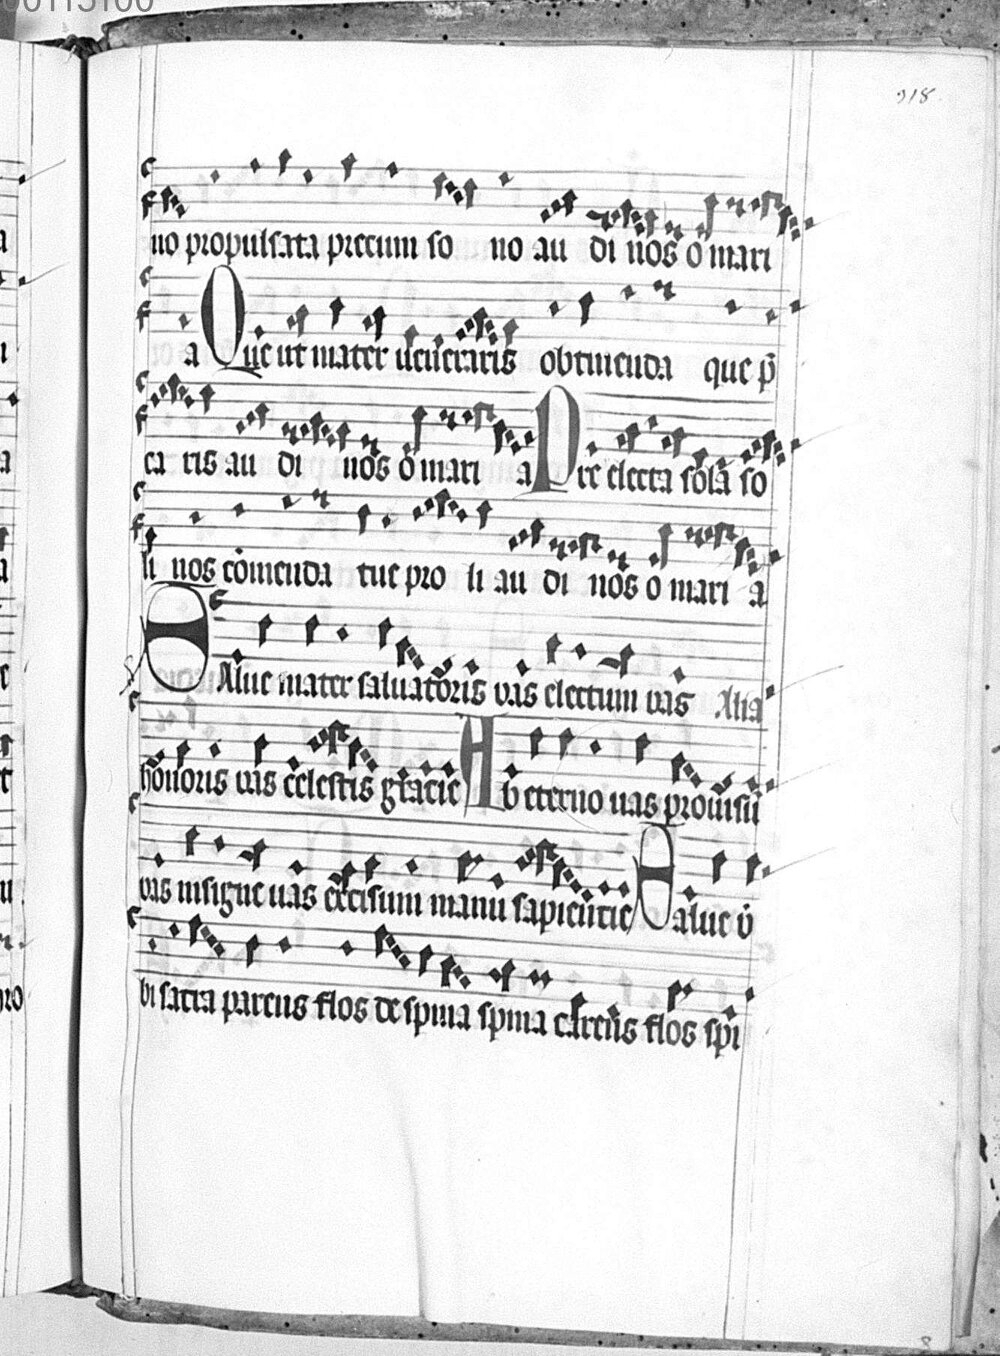 00113100
918.
no propulsata precum so no au di nos o mari
a Que ut mater veneraris obtinenda que p̄
ca ris au di nos o mari a Pre electa sola so
li nos cōmenda tue pro li au di nos o mari a
SAlue mater saluatoris vas electum vas Alia
honoris vas celestis gracie Ab eterno uas prouisū
vas insigne uas excisum manu sapiencie Salue v̄
bi sacra parens flos de spina spina carens flos spi
8